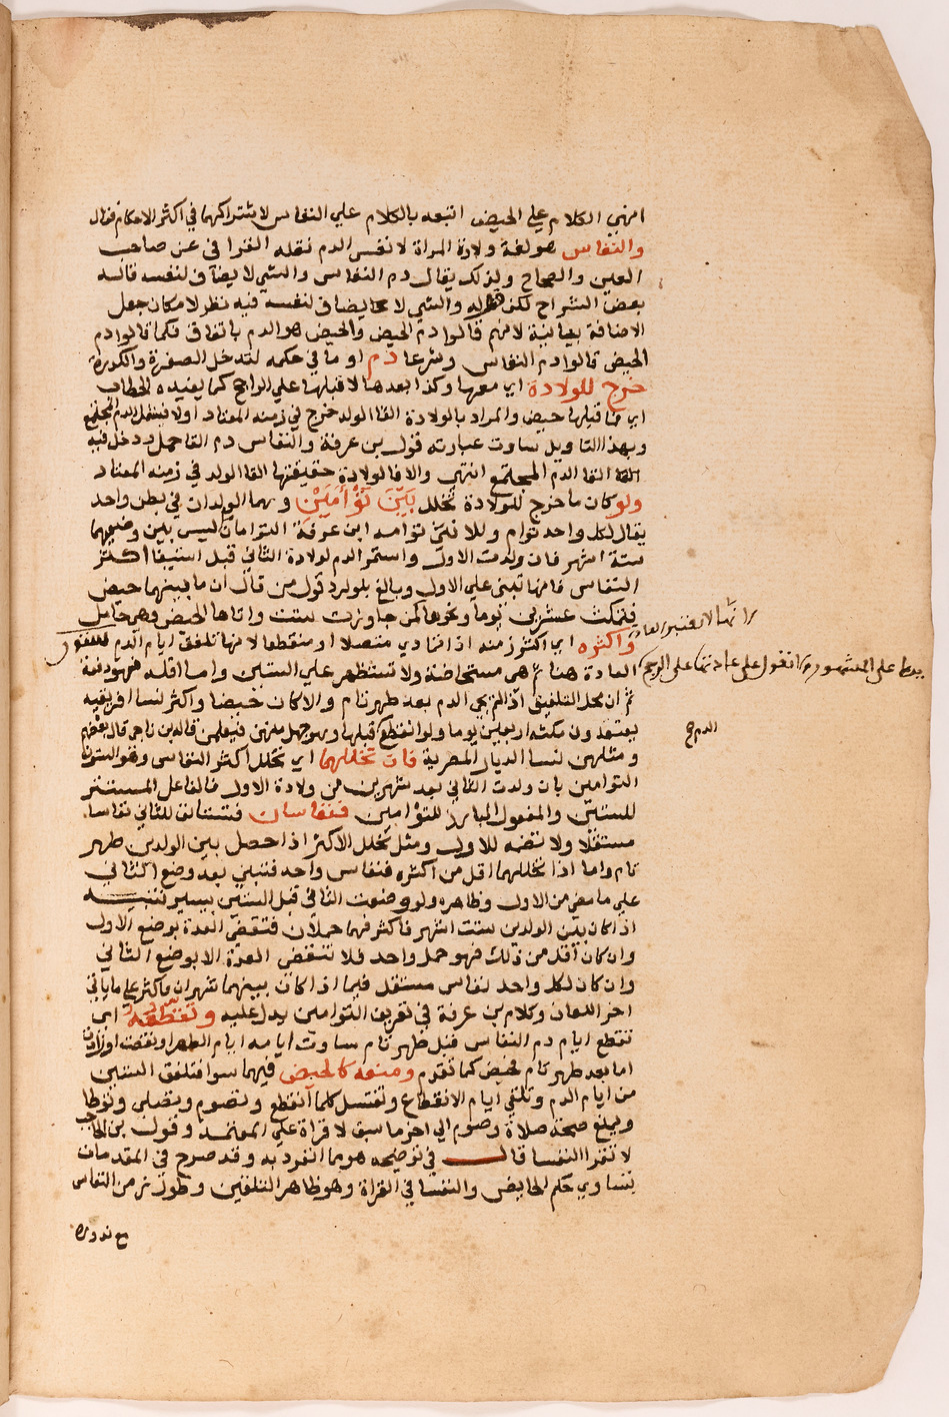 انهي الكلام علي الحيض اتبعه بالكلام علي النفاس لاشتراكهما في اكثر الاحكام فقال
والنفاس هو لغة ولادة المراة لا نفس الدم نقله القرافي عن صاحب
العين والصحاح ولذلك يقال دم النفاس والشي لا يضاف لنفسه قاله
بعض الشراح لكن قوله والشي لا يضاف لنفسه فيه نظر لامكان جعل
الاضافة بيانية لانهم قالوا دم الحيض والحيض هو الدم باتفاق فكما قالوا دم
الحيض قالوا دم النفاس وشرعا دم او ما في حكمه لتدخل الصفرة والكدرة
خرج للولادة اي معها وكذا بعدها لا قبلها علي الراجح كما يفيده الحطاب
اي فما قبلها حيض والمراد بالولادة القا الولد خرج في زمنه المعتاد اولا فينقل الدم المجتمع
وبهذا التاويل ساوت عبارته قول بن عرفة والنفاس دم القا حمل بدخل فيه
القا الدم المجتمع انتهي والا فالولادة حقيقتها القا الولد في زمنه المعتاد
ولو كان ما خرج للولادة تخلل بين توأمين وهما الولدان في بطن واحد
يقال لكل واحد توام وللانثي توامه ابن عرفة التوامان ليس بين وضعهما
ستة اشهر فان ولدت الاول واستمر الدم لولادة الثاني قبل استيفا اكثر
النفاس فانها تبني علي الاول وبالغ بلو لرد قول من قال ان ما بينهما حيض
فتمكث عشرين يوما ونحوها كمن جاوزت ست واتاها الحيض وهي حامل
واكثره اي اكثر زمنه اذا تمادي متصلا او منقطعا لانها تلفق ايام الدم
العادة هنا ثم هي مستحاضة ولا تستظهر علي الستين واما اقله فهو دفعة
ثم ان محل التلفيق اذا لم يجي الدم بعد طهر تام والا كان حيضا واكثر نسا افريقيه
يعتقدون مكثه اربعين يوما ولو انقطع قبلها وهو جهل منهن فليعلمن قاله بن ناجي قال بعضهم
ومثلهن نسا الديار المصرية فان تخللهما اي تخلل اكثر النفاس وهو الستون
التوامين بان ولدت الثاني بعد شهرين من ولادة الاول فالفاعل المستتر
للستين والمفعول البارز للتؤامين فنفاسان فتستانف للثاني نفاسا
مستقلا ولا تضمه للاول ومثل تخلل الاكثر اذا حصل بين الولدين طهر
تام واما اذا تخللهما اقل من اكثره فنفاس واحد فتبني بعد وضع الثاني
علي ما مضي من الاول وظاهره ولو وضعت الثاني قبل الستين بيسير تنبيه
اذا كان بين الولدين ست اشهر فاكثر فهما حملان فتنقضي العدة بوضع الاول
وان كان اقل من ذلك فهو حمل واحد فلا تنقضي العدة الا بوضع الثاني
وان كان لكل واحد نفاس مستقل فيما اذا كان بينهما شهران فاكثر علي ما ياتي
اخر اللعان وكلام بن عرفة في تعريف التوامين يدل عليه وتقطعه اي
تقطع ايام دم النفاس قبل طهر تام ساوت ايامه ايام الطهر او نقصت او زادت
اما بعد طهر تام فحيض كما تقدم ومنعه كالحيض فيهما سوا فتلفق الستين
من ايام الدم وتلغي ايام الانقطاع وتغتسل كلما انقطع وتصوم وتصلي وتوطا
ويمنع صحة صلاة وصوم الي اخر ما سبق لا قراة علي المعتمد وقول بن الحاجب
لا تقرا النفسا قال في توضيحه هو مما انفرد به وقد صرح في المقدمات
بتساوي حكم الحايض والنفسا في القراة وهو ظاهر التلقين وطرز من النفاس
مع ندوره